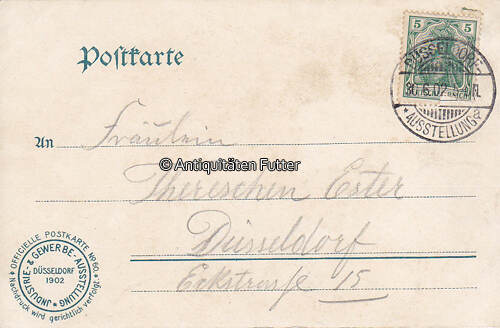 Postkarte
5 5
DÜSSELDORF-
30.6.02.
*AUSSTELLUNG a
An
Fräulein
© Antiquitäten Futter
Thereschen Ester
Düsseldorf
Eckstraße 15
* OFFICIELLE POSTKARTE No 60. *
Nachdruck wird gerichtlich verfolgt
JNDUSTRIE- & GEWERBE-AUSSTELLUNG
DÜSSELDORF
1902